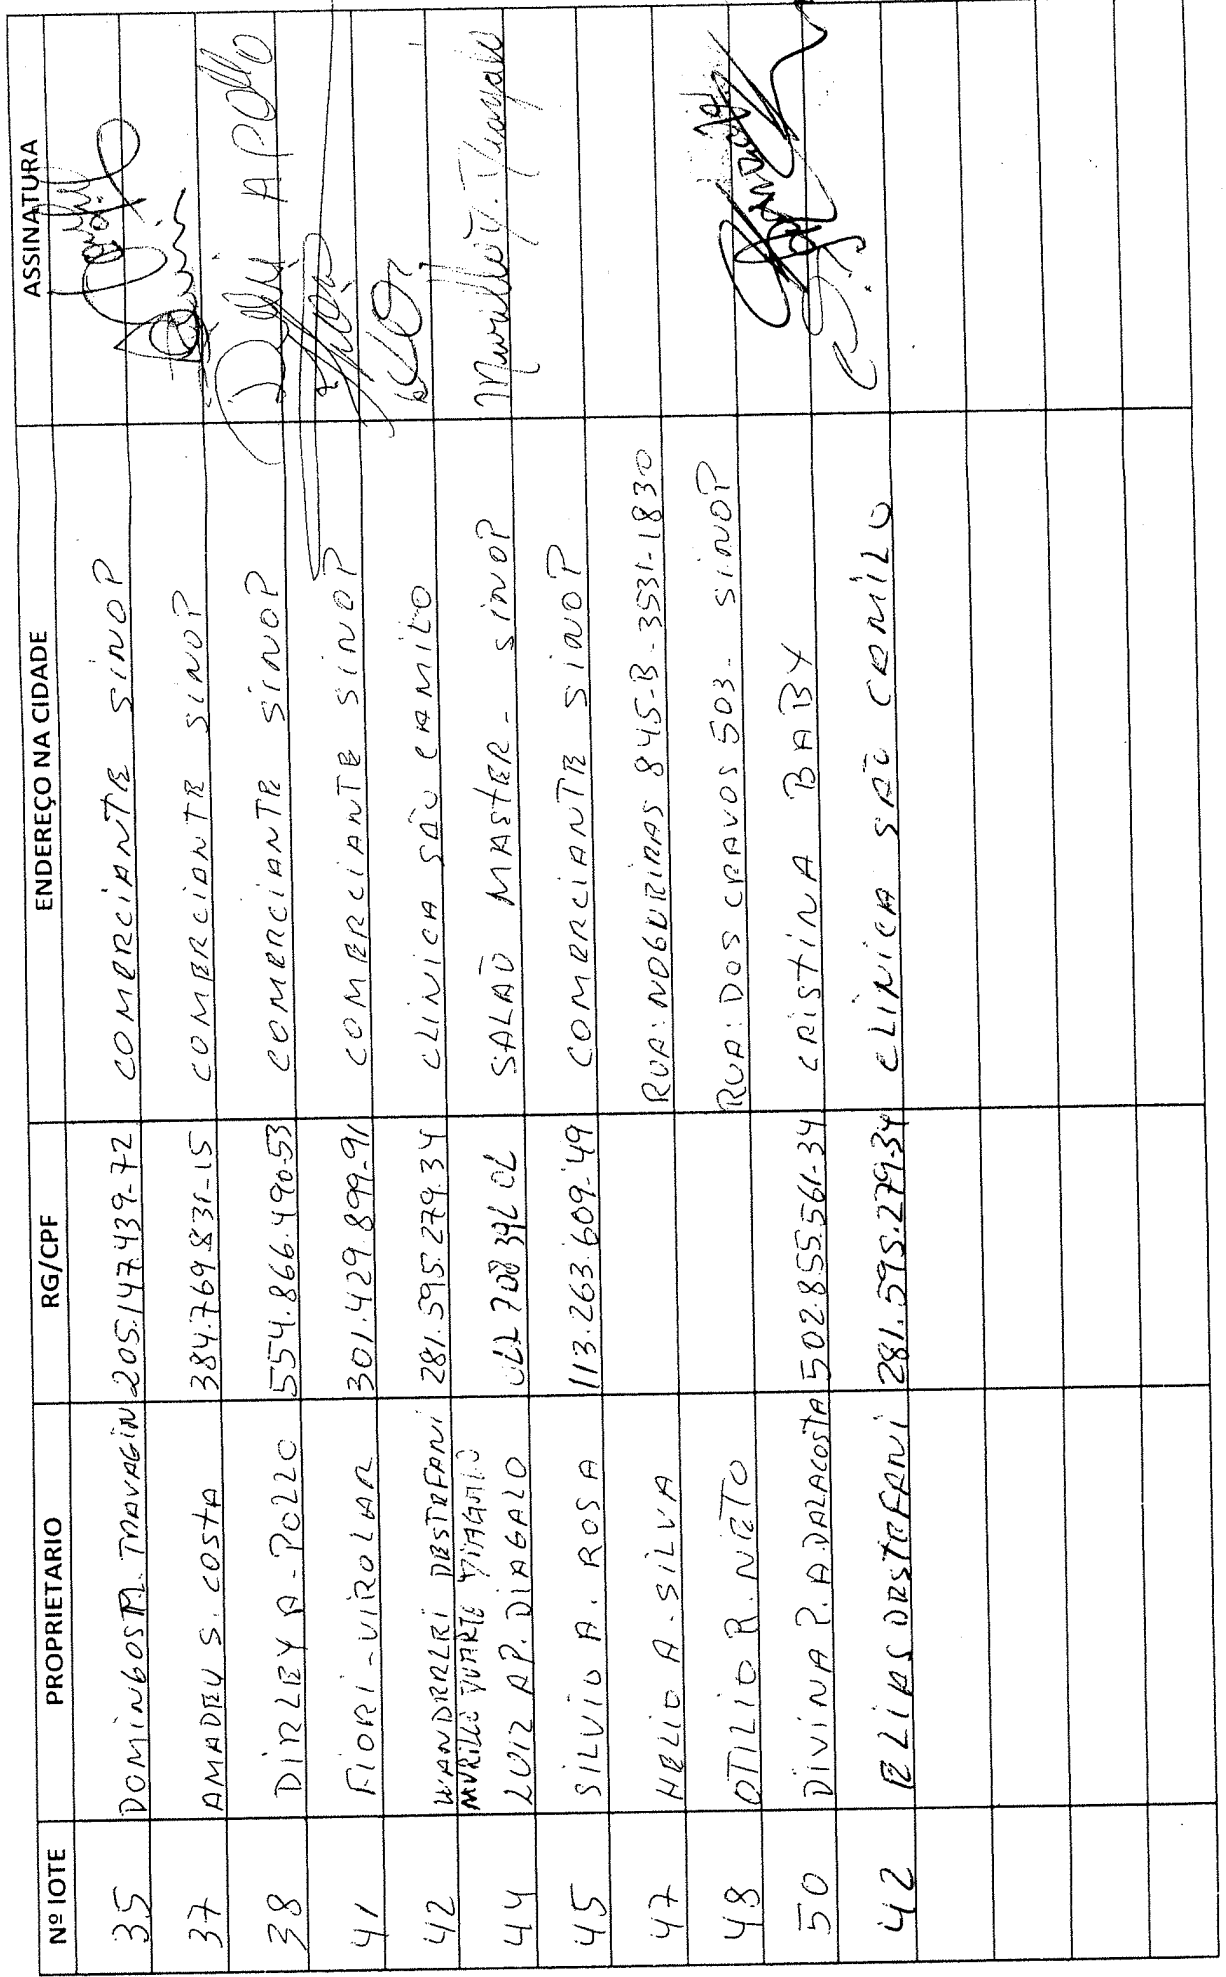 Nº lOTE PROPRIETARIO RG/CPF ENDEREÇO NA CIDADE ASSINATURA
35 DOMINGOS M. TRAVAGIN 205.147.439-72 COMERCIANTE SINOP
37 AMADEU S. COSTA 384.769.831-15 COMERCIANTE SINOP
38 DIRLEY A-POLLO 554.866.490-53 COMERCIANTE SINOP Dirley APOllo
41 FIORI-VIROLAR 301.429.899-91 COMERCIANTE SINOP
42 WANDERLEI DESTEFANI 281.595.279.34 CLINICA SÃO CAMILO
MURILLO DUARTE DIAGALO
44 LUIZ AP. DIAGALO SALÃO MASTER - SINOP Murillo D. Diagalo
45 SILVIO A. ROSA 113.263.609-49 COMERCIANTE SINOP
47 HELIO A. SILVA RUA: NOGUEIRAS 845-B-3531-1830
48 OTILIO R. NETO RUA: DOS CRAVOS 503- SINOP
50 DIVINA P. A. DALACOSTA 502855.561-34 CRISTINA BABY
42 ELIAS DESTEFANI 281.595.279-34 CLINICA SÃO CAMILO